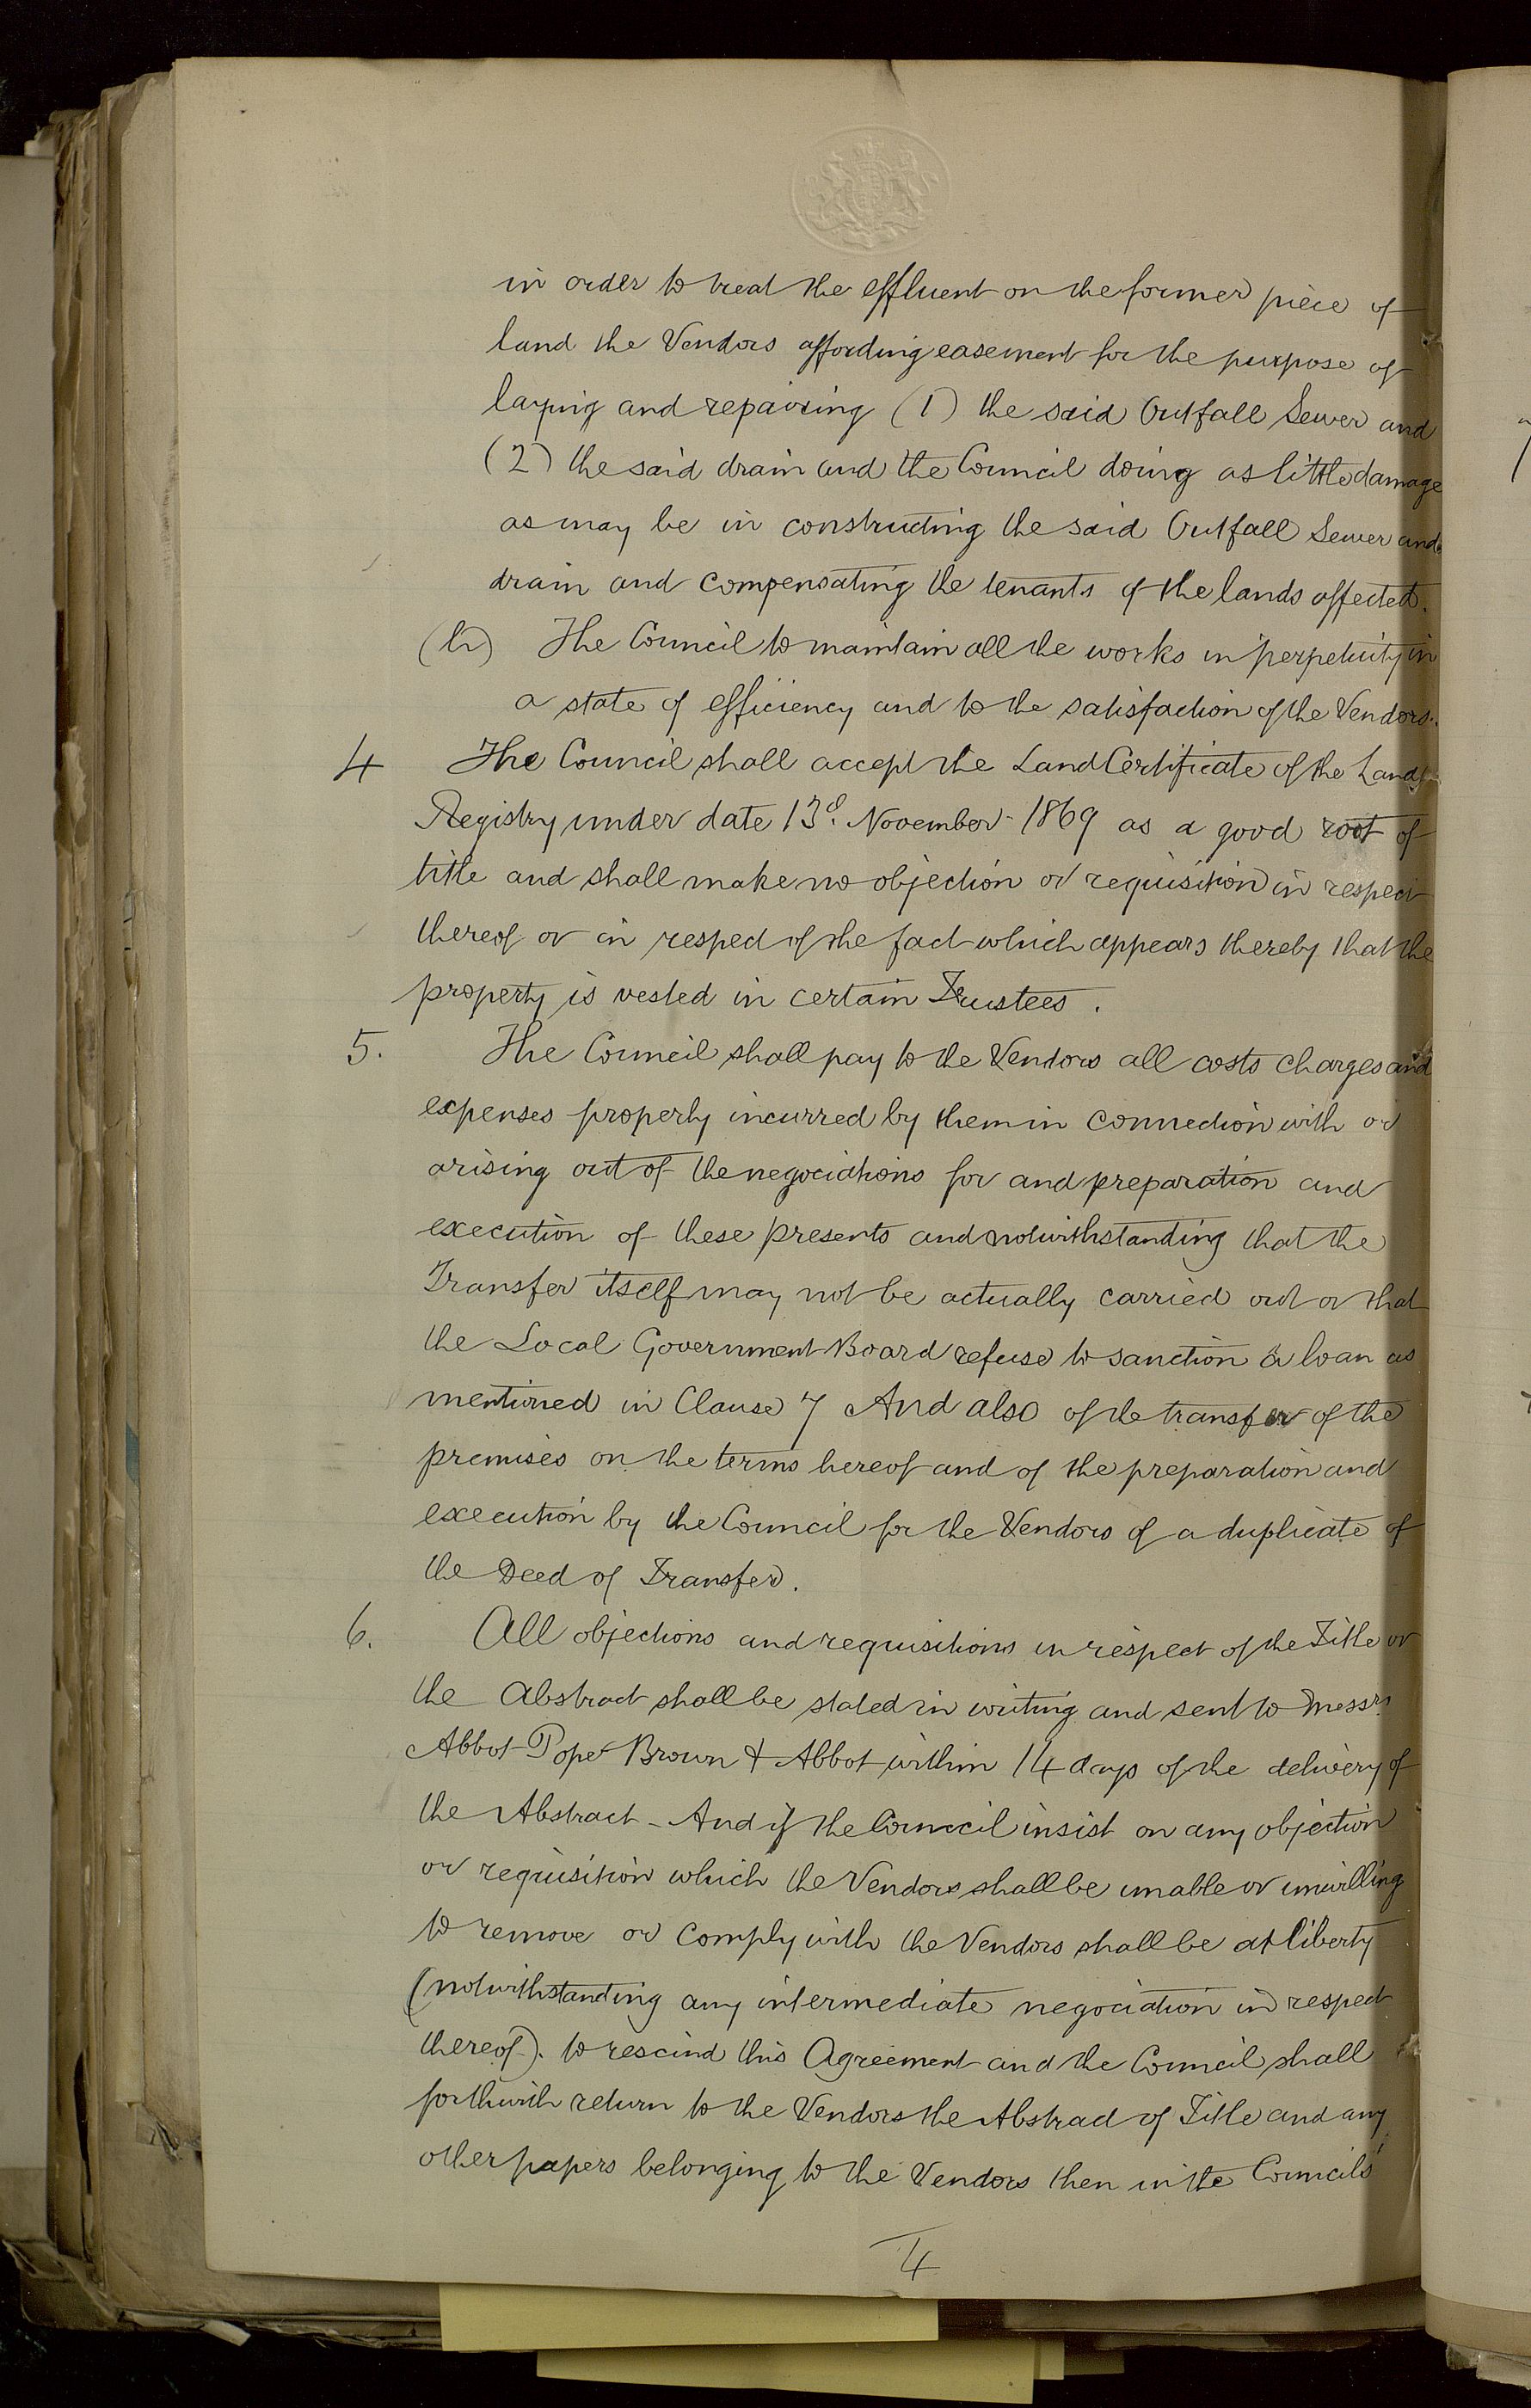 in order to treat the effluent on the former piece of
land the Vendors affording easement for the purpose of
laying and repairing (1) the said Outfall Sewer and
(2) the said drain and the Council doing as little damage
as may be in constructing the said Outfall Sewer and
drain and compensating the tenants of the lands affected.
(h) The Council to maintain all the works in perpetuity in
a state of efficiency and to the satisfaction of the Vendors.
4 The Council shall accept the Land Certificate of the Land
Registry under date 13d. November 1869 as a good root of
title and shall make no objection or requisition in respect
thereof or in respect of the fact which appears thereby that the
property is vested in certain Trustees.
5. The Council shall pay to the Vendors all costs charges and
expenses properly incurred by them in connection with or
arising out of the negociations for and preparation and
execution of these presents and notwithstanding that the
Transfer itself may not be actually carried out or that
the Local Government Board refuse to sanction a loan as
mentioned in Clause 7 And also of the transfer of the
premises on the terms hereof and of the preparation and
execution by the Council for the Vendors of a duplicate of
the Deed of Transfer.
6. All objections and requisitions in respect of the Title or
the Abstract shall be stated in writing and sent to Messrs.
Abbot Pope Brown & Abbot within 14 days of the delivery of
the Abstract - And if the Council insist on any objection
or requisition which the Vendors shall be unable or unwilling
to remove or comply with the Vendors shall be at liberty
(notwithstanding any intermediate negociation in respect
thereof). to rescind this Agreement and the Council shall
forthwith return to the Vendors the Abstract of Title and any
other papers belonging to the Vendors then in the Councils'
4